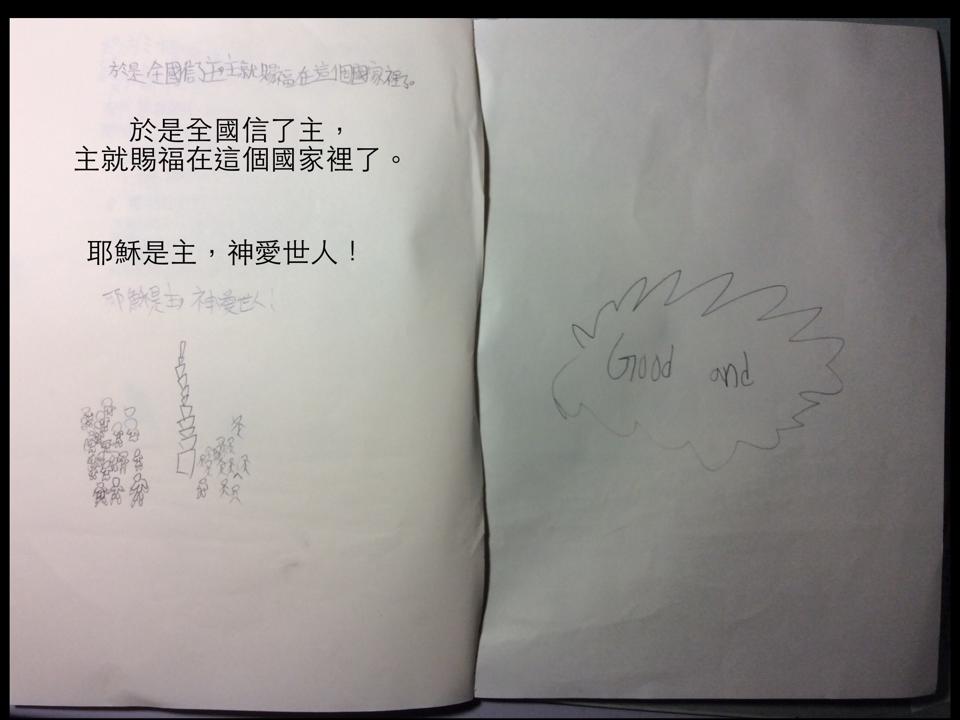 於是全國信了主,主就賜福在這個國家裡了。
於是全國信了主,
主就賜福在這個國家裡了。
耶穌是主,神愛世人!
耶穌是主,神愛世人!
Good and